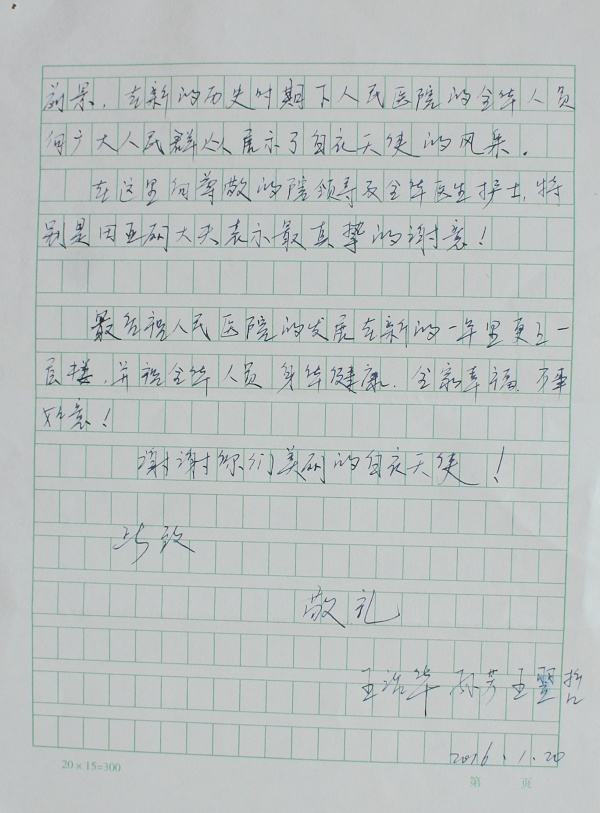 前景。在新的历史时期下人民医院的全体人员
向广大人民群众展示了白衣天使的风采。
在这里向尊敬的院领导及全体医生护士,特
别是田亚丽大夫表示最真挚的谢意!
最后祝人民医院的发展在新的一年里更上一
层楼,并祝全体人员身体健康、全家幸福、万事
如意!
谢谢你们美丽的白衣天使!
此致
敬礼
王 华 芳王
2016.1.20
20×15=300
第 页